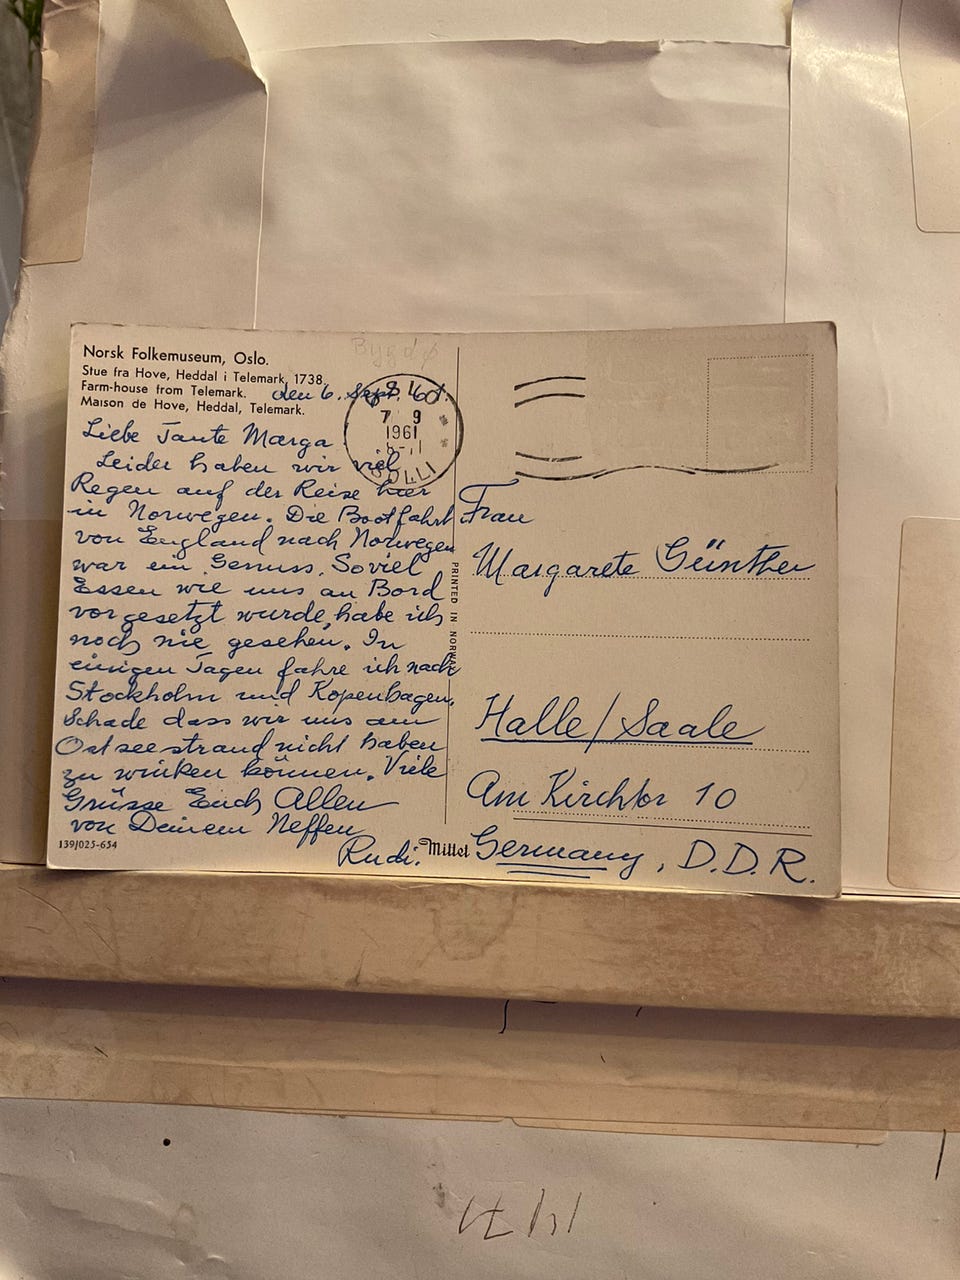 Norsk Folkemuseum, Oslo.
Stue fra Hove, Heddal i Telemark, 1738.
Farm-house from Telemark.
Maison de Hove, Heddal, Telemark.
Bygdø
den 6. Sept.
7 9
1961
SOLLI
Liebe Tante Marga
Leider haben wir viel
Regen auf der Reise hier
in Norwegen. Die Bootfahrt
von England nach Norwegen
war ein Genuss. Soviel
Essen wie uns an Bord
vorgesetzt wurde, habe ich
noch nie gesehen. In
einigen Tagen fahre ich nach
Stockholm und Kopenhagen,
Schade dass wir uns am
Ostseestrand nicht haben
zu winken können. Viele
Grüsse Euch Allen
von Deinem Neffen
Rudi.
139/025-654
PRINTED IN NORWAY
Mittet
Frau
Margarete Günther
Halle/Saale
Am Kirchtor 10
Germany, D.D.R.